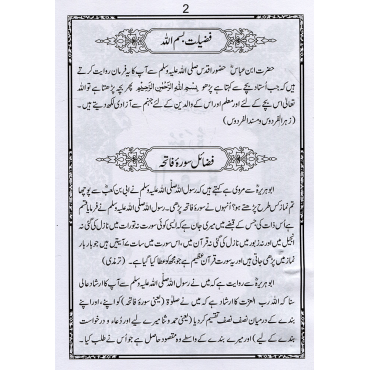 2
فضیلت بسم اللہ
حضرت ابن عباسؓ حضور اقدس صلی اللہ علیہ وسلم سے آپ کا یہ فرمان روایت کرتے
ہیں کہ جب اُستاد بچے سے کہتا ہے پڑھو بِسْمِ اللّٰهِ الرَّحْمٰنِ الرَّحِیْمِ پھر بچہ پڑھتا ہے تو اللہ
تعالیٰ اس بچے کے لئے اور معلم اور اس کے والدین کے لئے جہنم سے آزادی لکھ دیتے ہیں۔
(زہر الفردوس و مسند الفردوس)
فضائل سورۂ فاتحہ
ابو ہریرہؓ سے مروی ہے کہتے ہیں کہ رسول اللہ صلی اللہ علیہ وسلم نے اُبی بن کعبؓ سے پوچھا
تم نماز کس طرح پڑھتے ہو؟ اُنہوں نے سورۂ فاتحہ پڑھی۔ رسول اللہ صلی اللہ علیہ وسلم نے فرمایا قسم
ہے اُس ذات کی جس کے قبضے میں میری جان ہے کہ ایسی کوئی سورت نہ تورات میں نازل کی گئی نہ
انجیل میں اور نہ زبور میں نازل کی گئی نہ قرآن میں، اس سورت میں سات ۷ آیتیں ہیں جو بار بار
نماز میں پڑھی جاتی ہیں اور یہ سورت قرآنِ عظیم ہے جو مجھ کو عطا کیا گیا ہے۔ (ترمذی)
ابو ہریرہؓ سے روایت ہے کہ میں نے رسول اللہ صلی اللہ علیہ وسلم سے آپ کا ارشاد عالی
سنا کہ اللہ رب العزت کا ارشاد ہے کہ میں نے صلوٰۃ (یعنی سورۂ فاتحہ) کو اپنے، اور اپنے
بندے کے درمیان نصف نصف تقسیم کر دیا (یعنی حمد و ثنا میرے لیے اور دُعاء و درخواست
بندے کے لیے) اور میرے بندے کے واسطے وہ مقصود حاصل ہے جو اُس نے طلب کیا۔